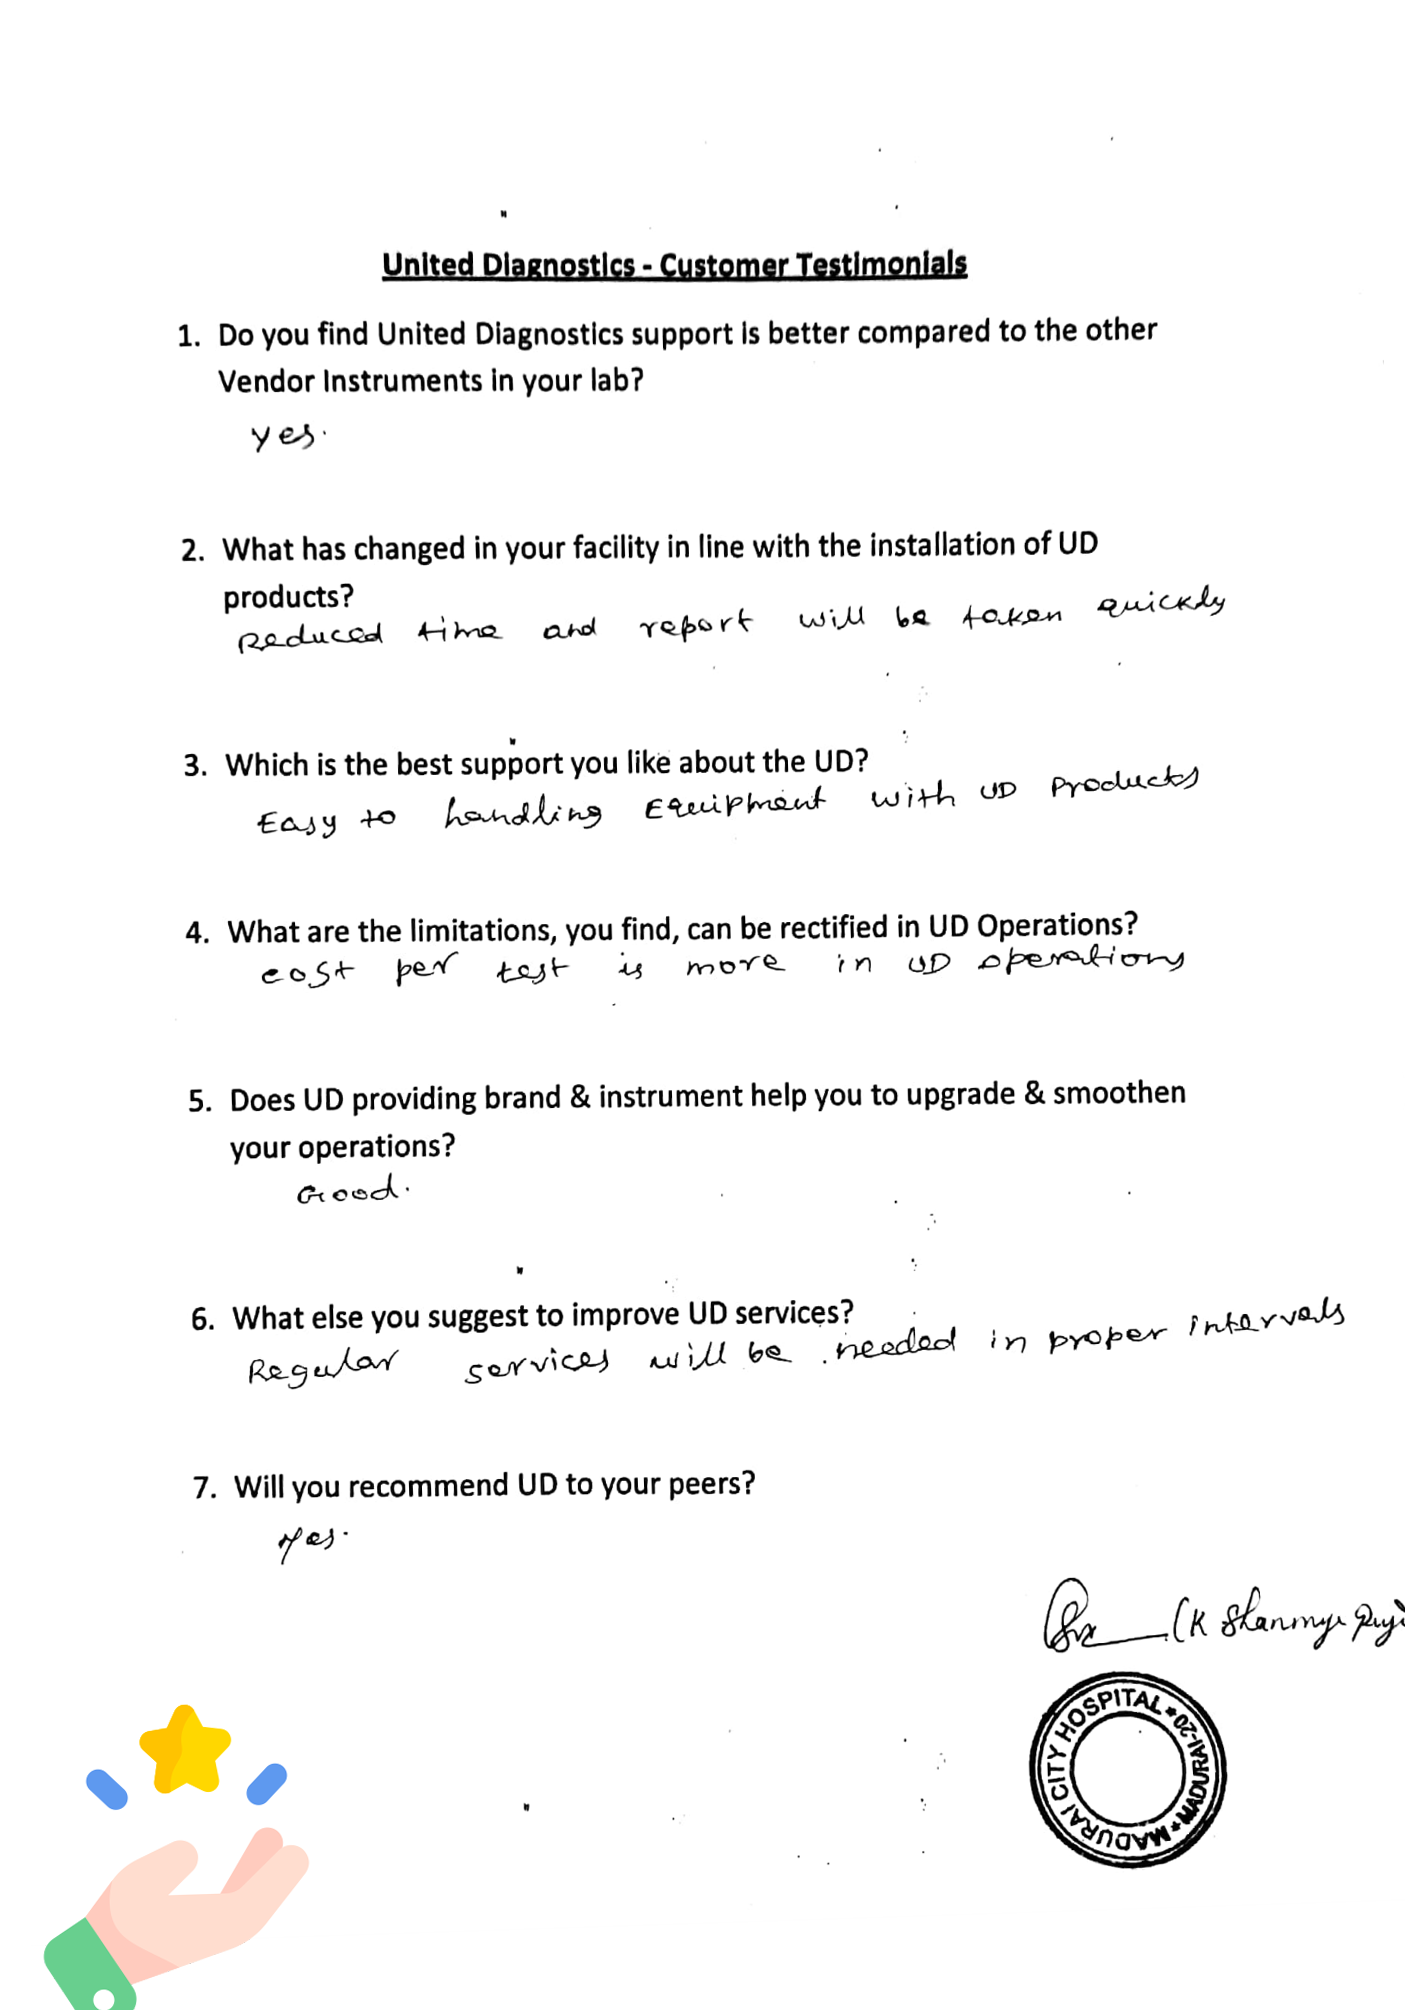 United Diagnostics - Customer Testimonials
1. Do you find United Diagnostics support is better compared to the other
Vendor Instruments in your lab?
Yes.
2. What has changed in your facility in line with the installation of UD
products?
Reduced time and report will be taken quickly
3. Which is the best support you like about the UD?
Easy to handling Equipment with UD Products
4. What are the limitations, you find, can be rectified in UD Operations?
cost per test is more in UD operations
5. Does UD providing brand & instrument help you to upgrade & smoothen
your operations?
Good.
6. What else you suggest to improve UD services?
Regular services will be needed in proper intervals
7. Will you recommend UD to your peers?
Yes.
(K
MADURAI CITY HOSPITAL * MADURAI-20 *